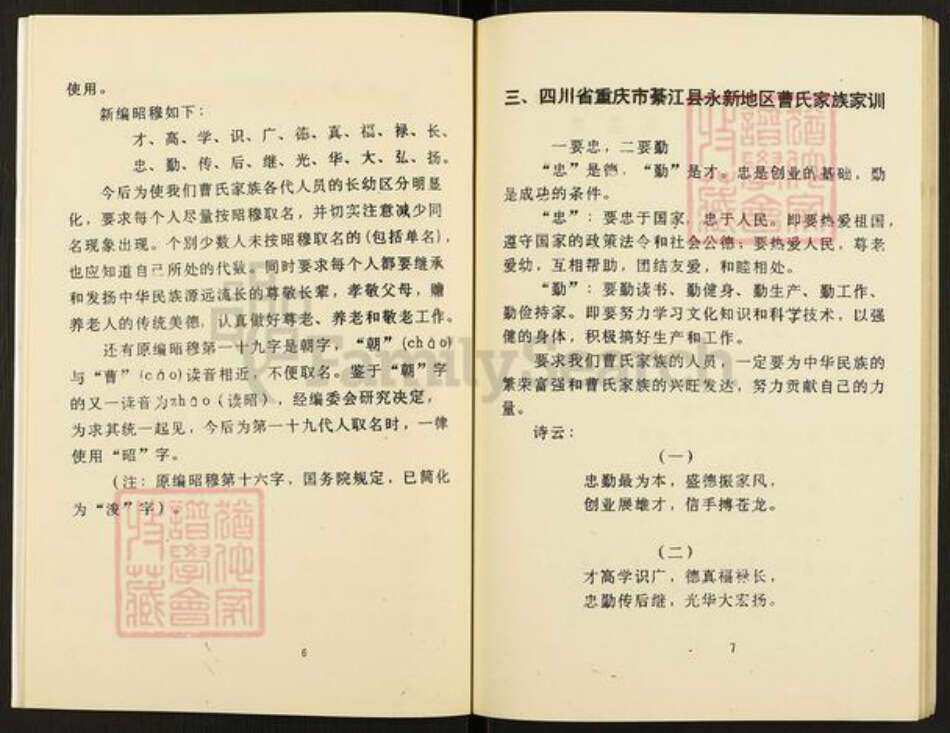 使用。
新编昭穆如下：
才、高、学、识、广、德、真、福、禄、长、
忠、勤、传、后、继、光、华、大、弘、扬。
今后为使我们曹氏家族各代人员的长幼区分明显
化，要求每个人尽量按昭穆取名，并切实注意减少同
名现象出现。个别少数人未按昭穆取名的(包括单名)，
也应知道自己所处的代数。同时要求每个人都要继承
和发扬中华民族源远流长的尊敬长辈，孝敬父母，赡
养老人的传统美德，认真做好尊老、养老和敬老工作。
还有原编昭穆第一十九字是朝字，“朝”(cháo)
与“曹”(cáo)读音相近，不便取名。鉴于“朝”字
的又一读音为zhāo（读昭），经编委会研究决定，
为求其统一起见，今后为第一十九代人取名时，一律
使用“昭”字。
（注：原编昭穆第十六字，国务院规定，已简化
为“浚”字）。
6
三、四川省重庆市綦江县永新地区曹氏家族家训
一要忠，二要勤
“忠”是德，“勤”是才。忠是创业的基础，勤
是成功的条件。
“忠”：要忠于国家，忠于人民。即要热爱祖国，
遵守国家的政策法令和社会公德；要热爱人民，尊老
爱幼，互相帮助，团结友爱，和睦相处。
“勤”：要勤读书、勤健身、勤生产、勤工作、
勤俭持家。即要努力学习文化知识和科学技术，以强
健的身体，积极搞好生产和工作。
要求我们曹氏家族的人员，一定要为中华民族的
繁荣富强和曹氏家族的兴旺发达，努力贡献自己的力
量。
诗云：
(一)
忠勤最为本，盛德振家风，
创业展雄才，信手搏苍龙。
(二)
才高学识广，德真福禄长，
忠勤传后继，光华大宏扬。
7
FamilySearch